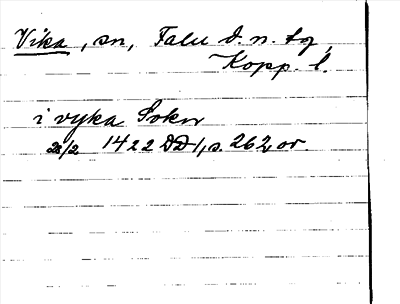 Vika, sn, Falu d. n. tg,
Kopp. l.
i vyka Sokn
28/2 1422 DD 1, s. 262, or.